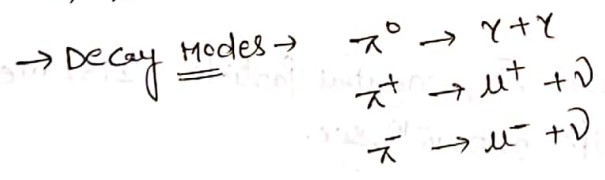 → Decay Modes → π⁰ → γ + γ
π⁺ → μ⁺ + ν
π⁻ → μ⁻ + ν